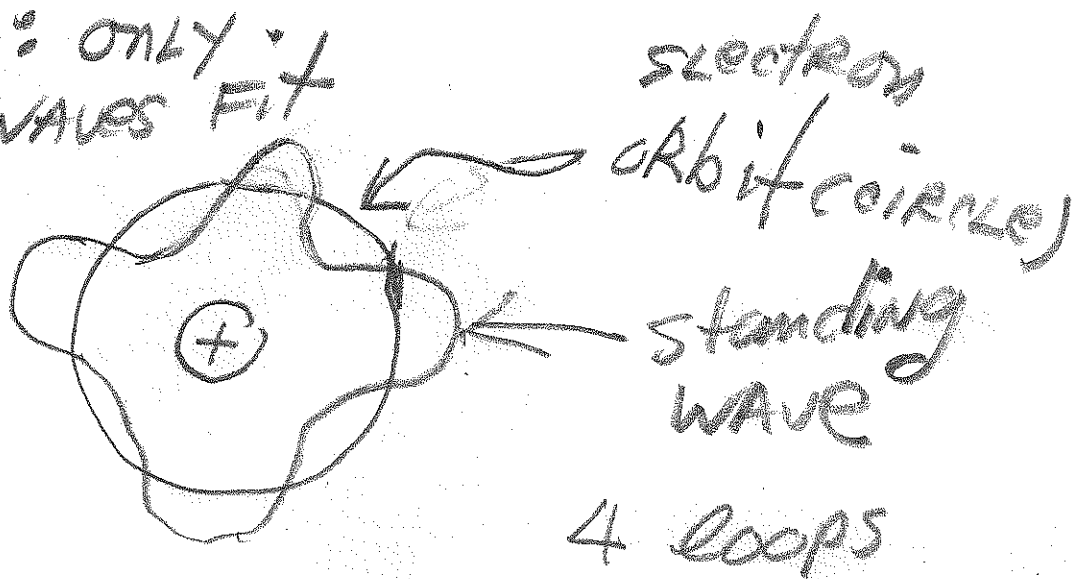 : ONLY
WAVES Fit
SLectRon
ORbit (COiRCLe)
+
standing
WAVE
4 loops